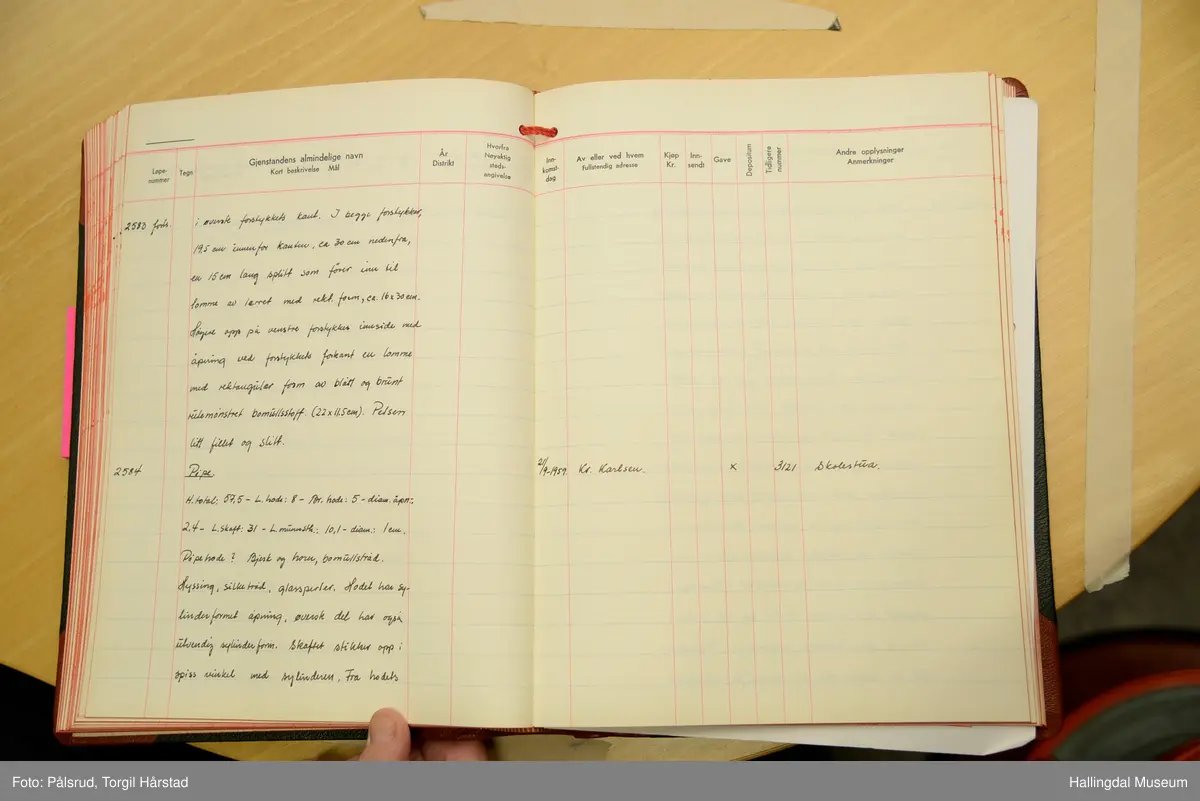 Løpe-
nummer
Tegn
Gjenstandens almindelige navn
Kort beskrivelse Mål
År
Distrikt
Hvorfra
Nøyaktig
steds-
angivelse
Inn-
komst-
dag
Av eller ved hvem
Fullstendig adresse
Kjøp
Kr.
Inn-
sendt
Gave
Depositum
Tidligere
nummer
Andre opplysninger
Anmerkninger
2583 forts. i øverste forstykkets kant. I begge forstykker,
19,5 cm innenfor kanten, ca 30 cm nedenfra,
en 15 cm lang splitt som fører inn til
lomme av lerret med rekt. form, ca. 16 x 30 cm.
Høyere opp på venstre forstykkes innside med
åpning ved forstykkets forkant en lomme
med rektangulær form av blått og brunt
rutemønstret bomullsstoff. (22 x 11,5 cm). Pelsen
litt fillet og slitt.
2584 Pipe. 21/9-1957. Kr. Karlsen. x 3121 Skolestua.
H. total: 57,5 - L. hode: 8 - Br. hode: 5 - diam. åpn:
2,4 - L. skaft: 31 - L. munnstk.: 10,1 - diam.: 1 cm.
Pipehode ? Bjerk og horn, bomullstråd.
Hyssing, silketråd, glassperler. Hodet har sy-
linderformet åpning, øversk del har også
utvendig sylinderform. Skaftet stikker opp i
spiss vinkel med sylinderen. Fra hodets
Foto: Pålsrud, Torgil Hårstad
Hallingdal Museum